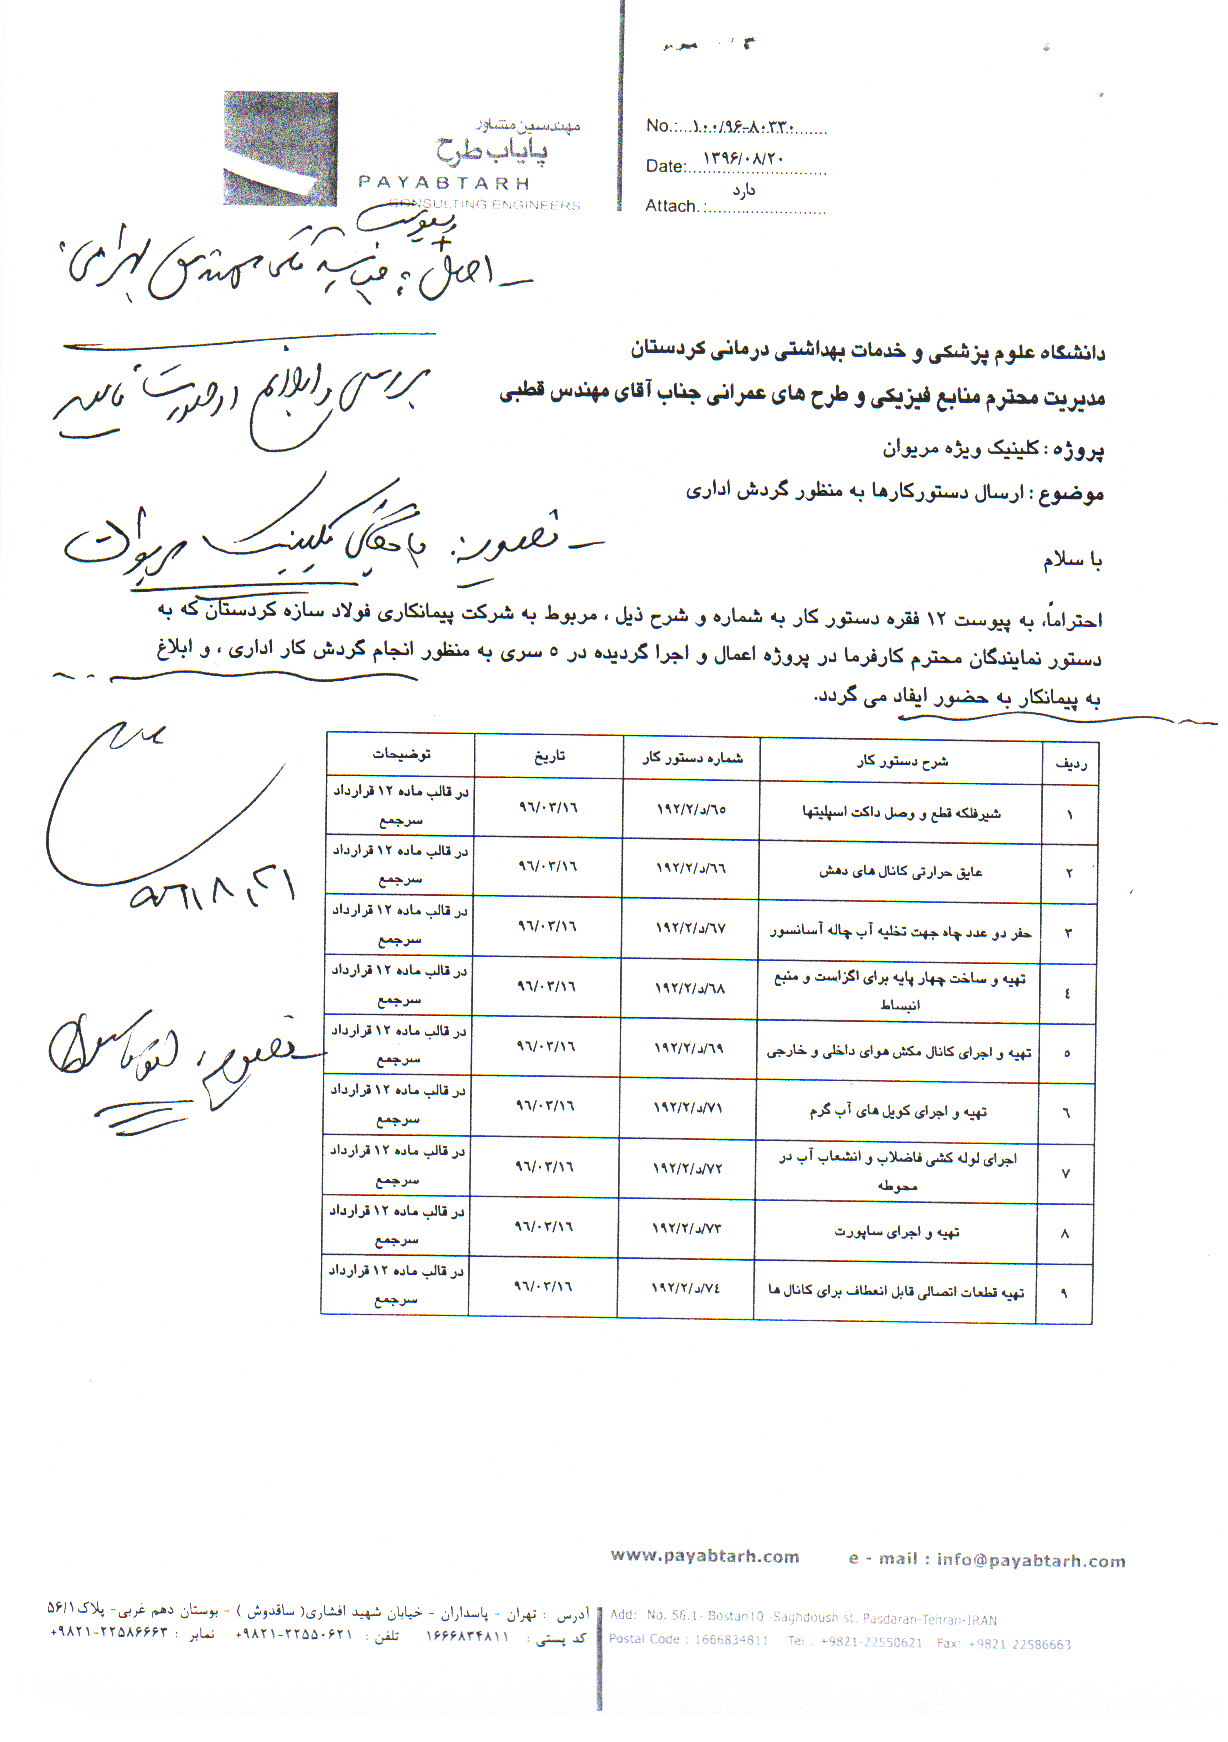 مهندسین مشاور
پایاب طرح
PAYABTARH
CONSULTING ENGINEERS
No.:...۱۰۰/۹۶-۸۰۳۳۰.......
Date:...۱۳۹۶/۰۸/۲۰.......
دارد
Attach.:........................
پیوست
_ اصل + به جناب آقای مهندس بهرامی
دانشگاه علوم پزشکی و خدمات بهداشتی درمانی کردستان
بررسی و
مدیریت محترم منابع فیزیکی و طرح های عمرانی جناب آقای مهندس قطبی
پروژه : کلینیک ویژه مریوان
موضوع : ارسال دستورکارها به منظور گردش اداری
_ تصویر: کلینیک مریوان
با سلام
احتراماً، به پیوست ۱۲ فقره دستور کار به شماره و شرح ذیل ، مربوط به شرکت پیمانکاری فولاد سازه کردستان که به
دستور نمایندگان محترم کارفرما در پروژه اعمال و اجرا گردیده در ۵ سری به منظور انجام گردش کار اداری ، و ابلاغ
به پیمانکار به حضور ایفاد می گردد.
ردیف شرح دستور کار شماره دستور کار تاریخ توضیحات
۱ شیرفلکه قطع و وصل داکت اسپلیتها ۱۹۲/۲/د/٦٥ ۹٦/۰۳/۱٦ در قالب ماده ۱۲ قرارداد سرجمع
۲ عایق حرارتی کانال های دهش ۱۹۲/۲/د/٦٦ ۹٦/۰۳/۱٦ در قالب ماده ۱۲ قرارداد سرجمع
۳ حفر دو عدد چاه جهت تخلیه آب چاله آسانسور ۱۹۲/۲/د/٦۷ ۹٦/۰۳/۱٦ در قالب ماده ۱۲ قرارداد سرجمع
٤ تهیه و ساخت چهار پایه برای اگزاست و منبع انبساط ۱۹۲/۲/د/٦۸ ۹٦/۰۳/۱٦ در قالب ماده ۱۲ قرارداد سرجمع
٥ تهیه و اجرای کانال مکش هوای داخلی و خارجی ۱۹۲/۲/د/٦۹ ۹٦/۰۳/۱٦ در قالب ماده ۱۲ قرارداد سرجمع
٦ تهیه و اجرای کویل های آب گرم ۱۹۲/۲/د/۷۱ ۹٦/۰۳/۱٦ در قالب ماده ۱۲ قرارداد سرجمع
۷ اجرای لوله کشی فاضلاب و انشعاب آب در محوطه ۱۹۲/۲/د/۷۲ ۹٦/۰۳/۱٦ در قالب ماده ۱۲ قرارداد سرجمع
۸ تهیه و اجرای ساپورت ۱۹۲/۲/د/۷۳ ۹٦/۰۳/۱٦ در قالب ماده ۱۲ قرارداد سرجمع
۹ تهیه قطعات اتصالی قابل انعطاف برای کانال ها ۱۹۲/۲/د/۷٤ ۹٦/۰۳/۱٦ در قالب ماده ۱۲ قرارداد سرجمع
۹۶/۸/۲۱
_ تصویر:
www.payabtarh.com e - mail : info@payabtarh.com
آدرس : تهران - پاسداران - خیابان شهید افشاری( ساقدوش ) - بوستان دهم غربی- پلاک۵۶/۱
کد پستی : ۱۶۶۶۸۳۴۸۱۱ تلفن : ۲۲۵۵۰۶۲۱-۹۸۲۱+ نمابر : ۲۲۵۸۶۶۶۳-۹۸۲۱+
Add: No. 56.1- Bostan10 -Saghdoush st. Pasdaran-Tehran-IRAN
Postal Code : 1666834811 Tel : +9821-22550621 Fax: +9821-22586663